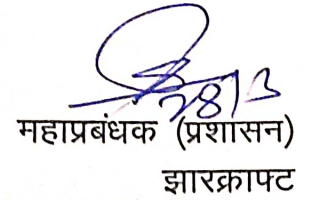 28/3
महाप्रबंधक (प्रशासन)
झारक्राफ्ट